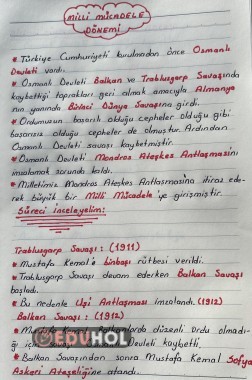 MİLLİ MÜCADELE
DÖNEMİ
* Türkiye Cumhuriyeti kurulmadan önce Osmanlı
Devleti vardı.
* Osmanlı Devleti Balkan ve Trablusgarp Savaşında
kaybettiği toprakları geri almak amacıyla Almanya'
nın yanında Birinci Dünya Savaşına girdi.
* Ordumuzun başarılı olduğu cepheler olduğu gibi
başarısız olduğu cepheler de olmuştur. Ardından
Osmanlı Devleti savaşı kaybetmiştir.
* Osmanlı Devleti Mondros Ateşkes Antlaşması'nı
imzalamak zorunda kaldı.
* Milletimiz Mondros Ateşkes Antlaşmasına itiraz ede-
rek büyük bir Milli Mücadele'ye girişmiştir.
Süreci inceleyelim:
Trablusgarp Savaşı: (1911)
* Mustafa Kemal'e binbaşı rütbesi verildi.
* Trablusgarp Savaşı devam ederken Balkan Savaşı
başladı.
* Bu nedenle Uşi Antlaşması imzalandı. (1912)
Balkan Savaşı: (1912)
* Kemal düzenli ordu olmadı
ğı için Devleti kaybetti.
EDUHOL
* Balkan Savaşından sonra Mustafa Kemal Sofya
Askeri Ateşeliğine atandı.